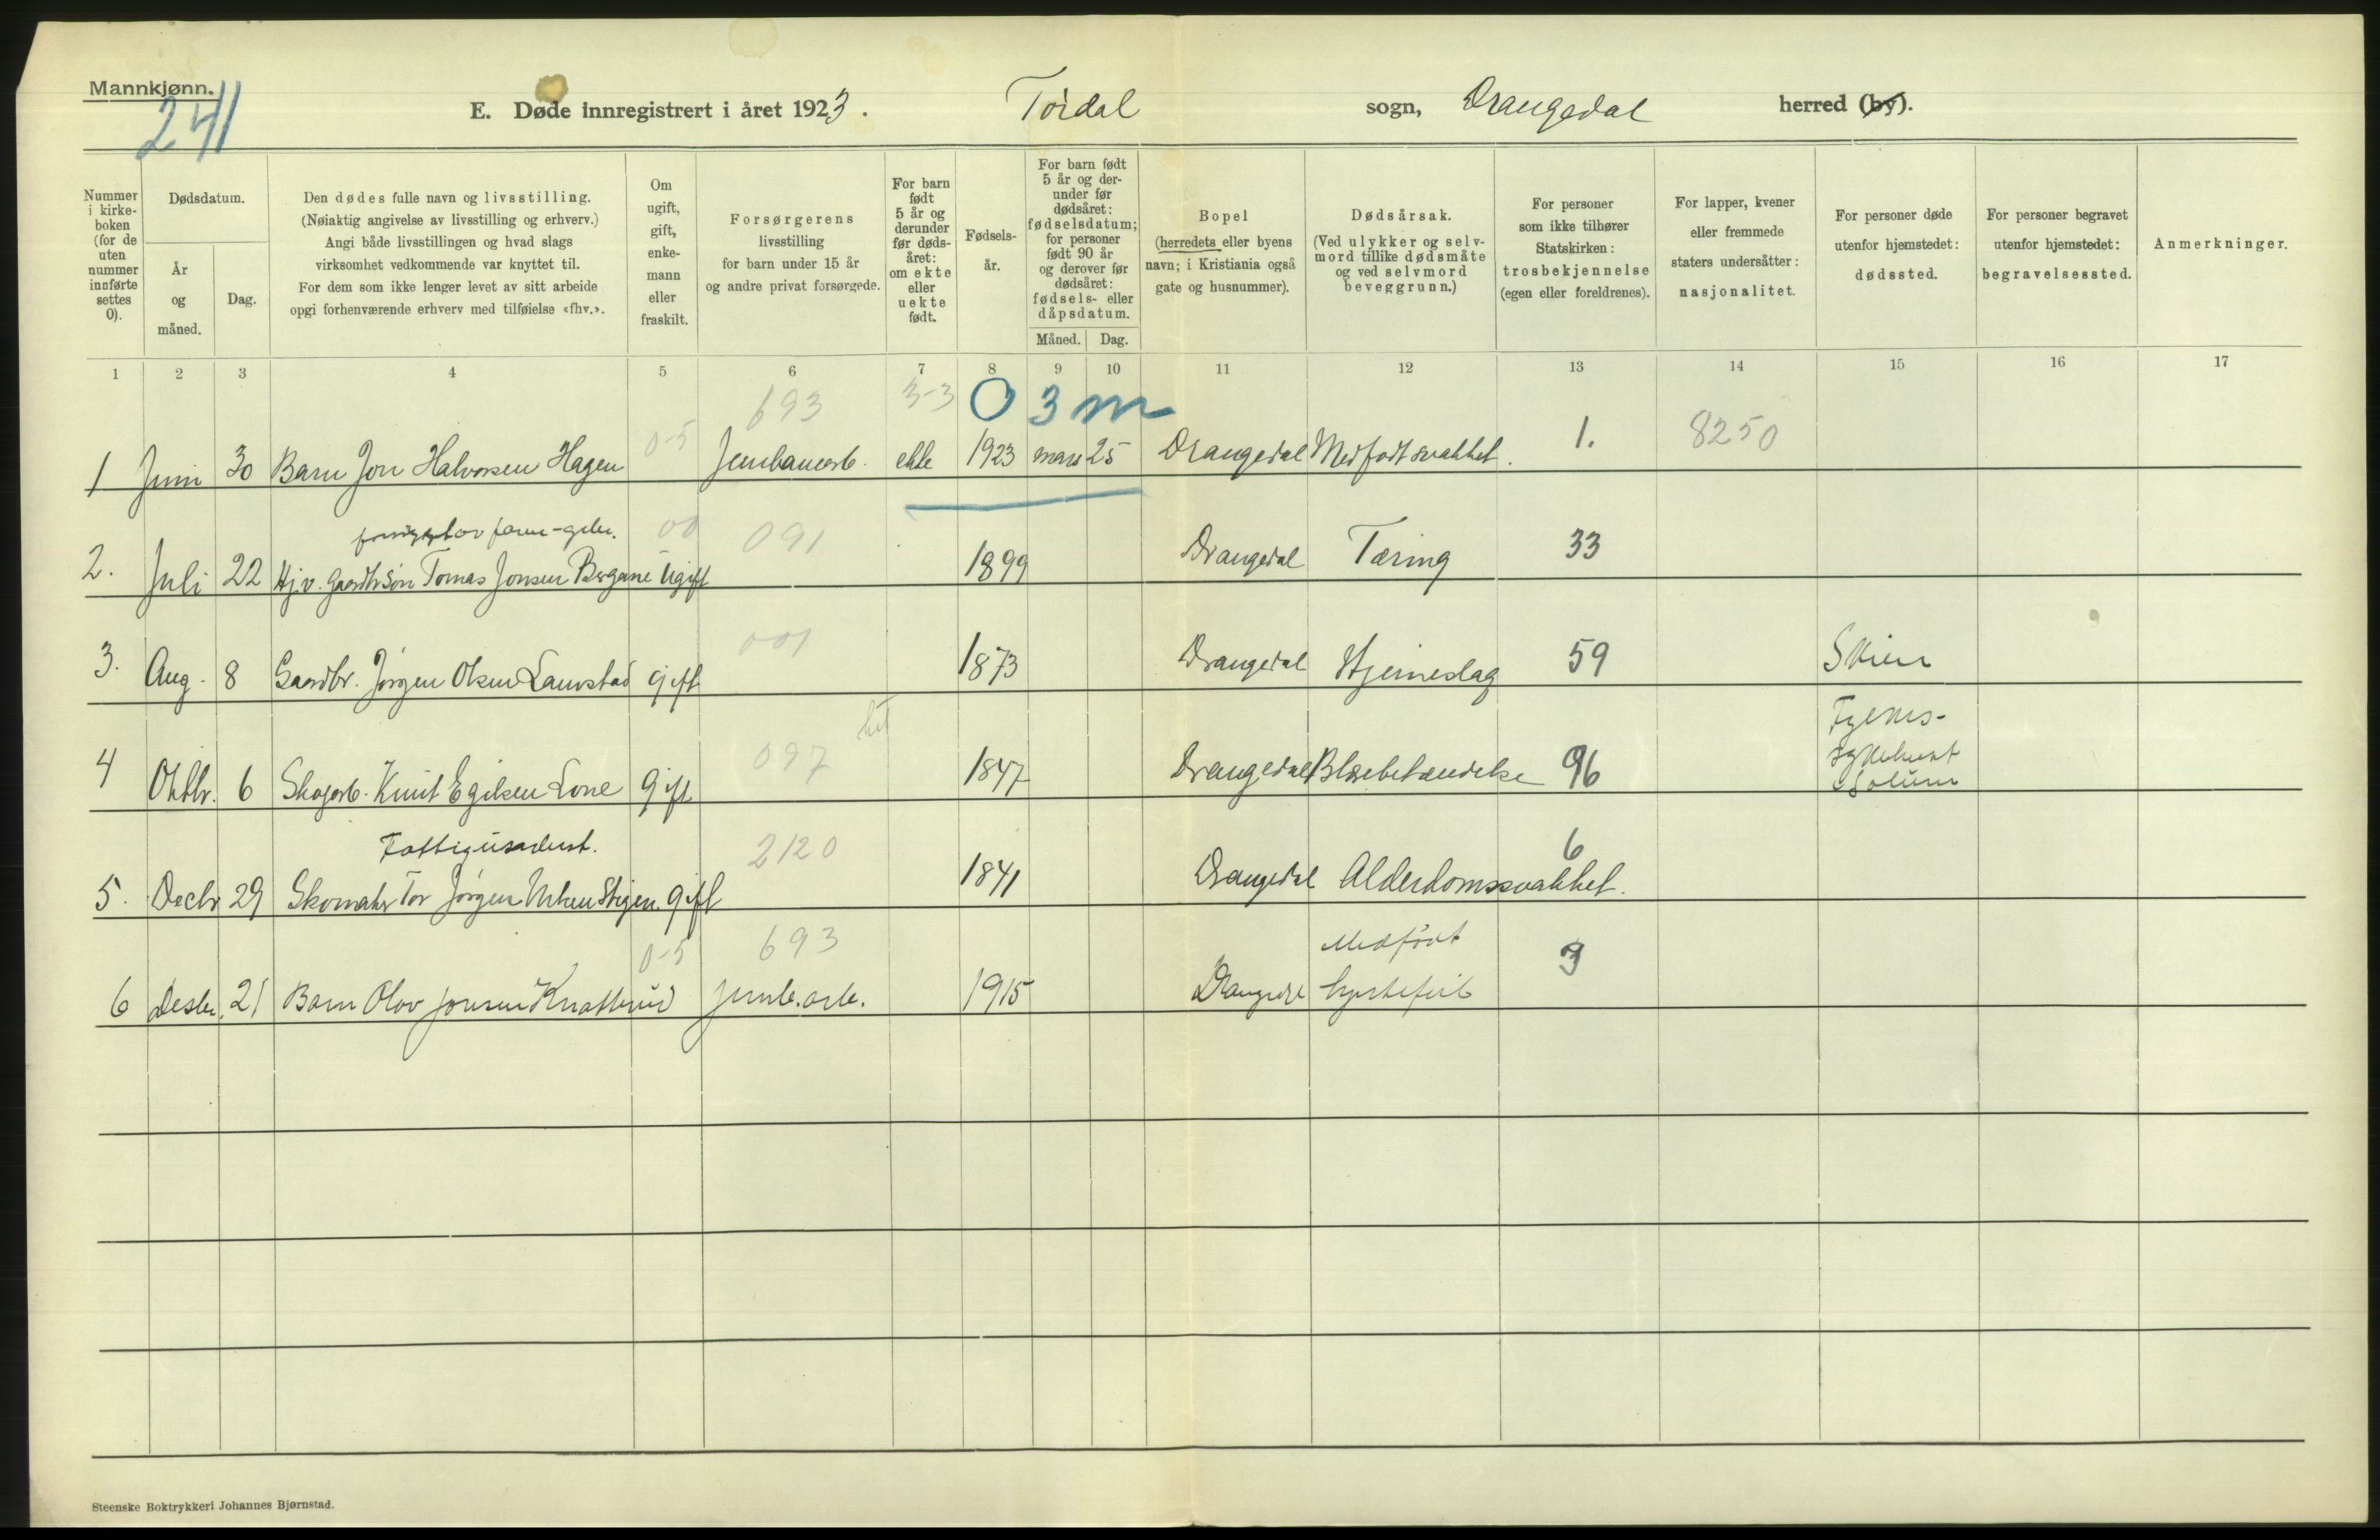 Mannkjønn.
241
E. Døde innregistrert i året 1923. Tørdal sogn, Drangedal herred (by).
Nummer i kirkeboken (for de uten nummer innførte settes 0).
Dødsdatum.
År og måned.
Dag.
Den dødes fulle navn og livsstilling.
(Nøiaktig angivelse av livsstilling og erhverv.)
Angi både livsstillingen og hvad slags
virksomhet vedkommende var knyttet til.
For dem som ikke lenger levet av sitt arbeide
opgi forhenværende erhverv med tilføielse «fhv.».
Om ugift, gift, enkemann eller fraskilt.
Forsørgerens
livsstilling
for barn under 15 år
og andre privat forsørgede.
For barn født 5 år og derunder før dødsåret: om ekte eller uekte født.
Fødselsår.
For barn født 5 år og derunder før dødsåret: fødselsdatum; for personer født 90 år og derover før dødsåret: fødsels- eller dåpsdatum.
Måned. Dag.
Bopel
(herredets eller byens
navn; i Kristiania også
gate og husnummer).
Dødsårsak.
(Ved ulykker og selvmord tillike dødsmåte
og ved selvmord
beveggrunn.)
For personer
som ikke tilhører
Statskirken:
trosbekjennelse
(egen eller foreldrenes).
For lapper, kvener
eller fremmede
staters undersåtter:
nasjonalitet.
For personer døde
utenfor hjemstedet:
dødssted.
For personer begravet
utenfor hjemstedet:
begravelsessted.
Anmerkninger.
1 2 3 4 5 6 7 8 9 10 11 12 13 14 15 16 17
693 3-3 0 3 m
1 Juni 30 Barn Jon Halvorsen Hagen 0-5 Jernbanearb. ekte 1923 mars 25 Drangedal Medfødt svakhet. 1. 8250
00 091
2. Juli 22 Hj.v. Gaardbr. søn Tomas Jonsen Bergane Ugift 1899 Drangedal Tæring 33
001
3. Aug. 8 Gaardbr. Jørgen Olsen Lauvstad gift 1873 Drangedal Hjerneslag 59 Skien
097
4 Oktbr. 6 Skogarb. Knut Egilsen Lone gift 1847 Drangedal Blærebetændelse 96 Fylkes-
sykehuset
Solum
Fattigunderst. 2120
5. Decbr 29 Skomaker Tor Jørgen Stigen gift 1841 Drangedal Alderdomssvakhet. 6
0-5 693 Medfødt
6 Desbr. 21 Barn Olov Jonsen Knatterud jernb.arb. 1915 Drangedal hjertefeil 3
Steenske Boktrykkeri Johannes Bjørnstad.